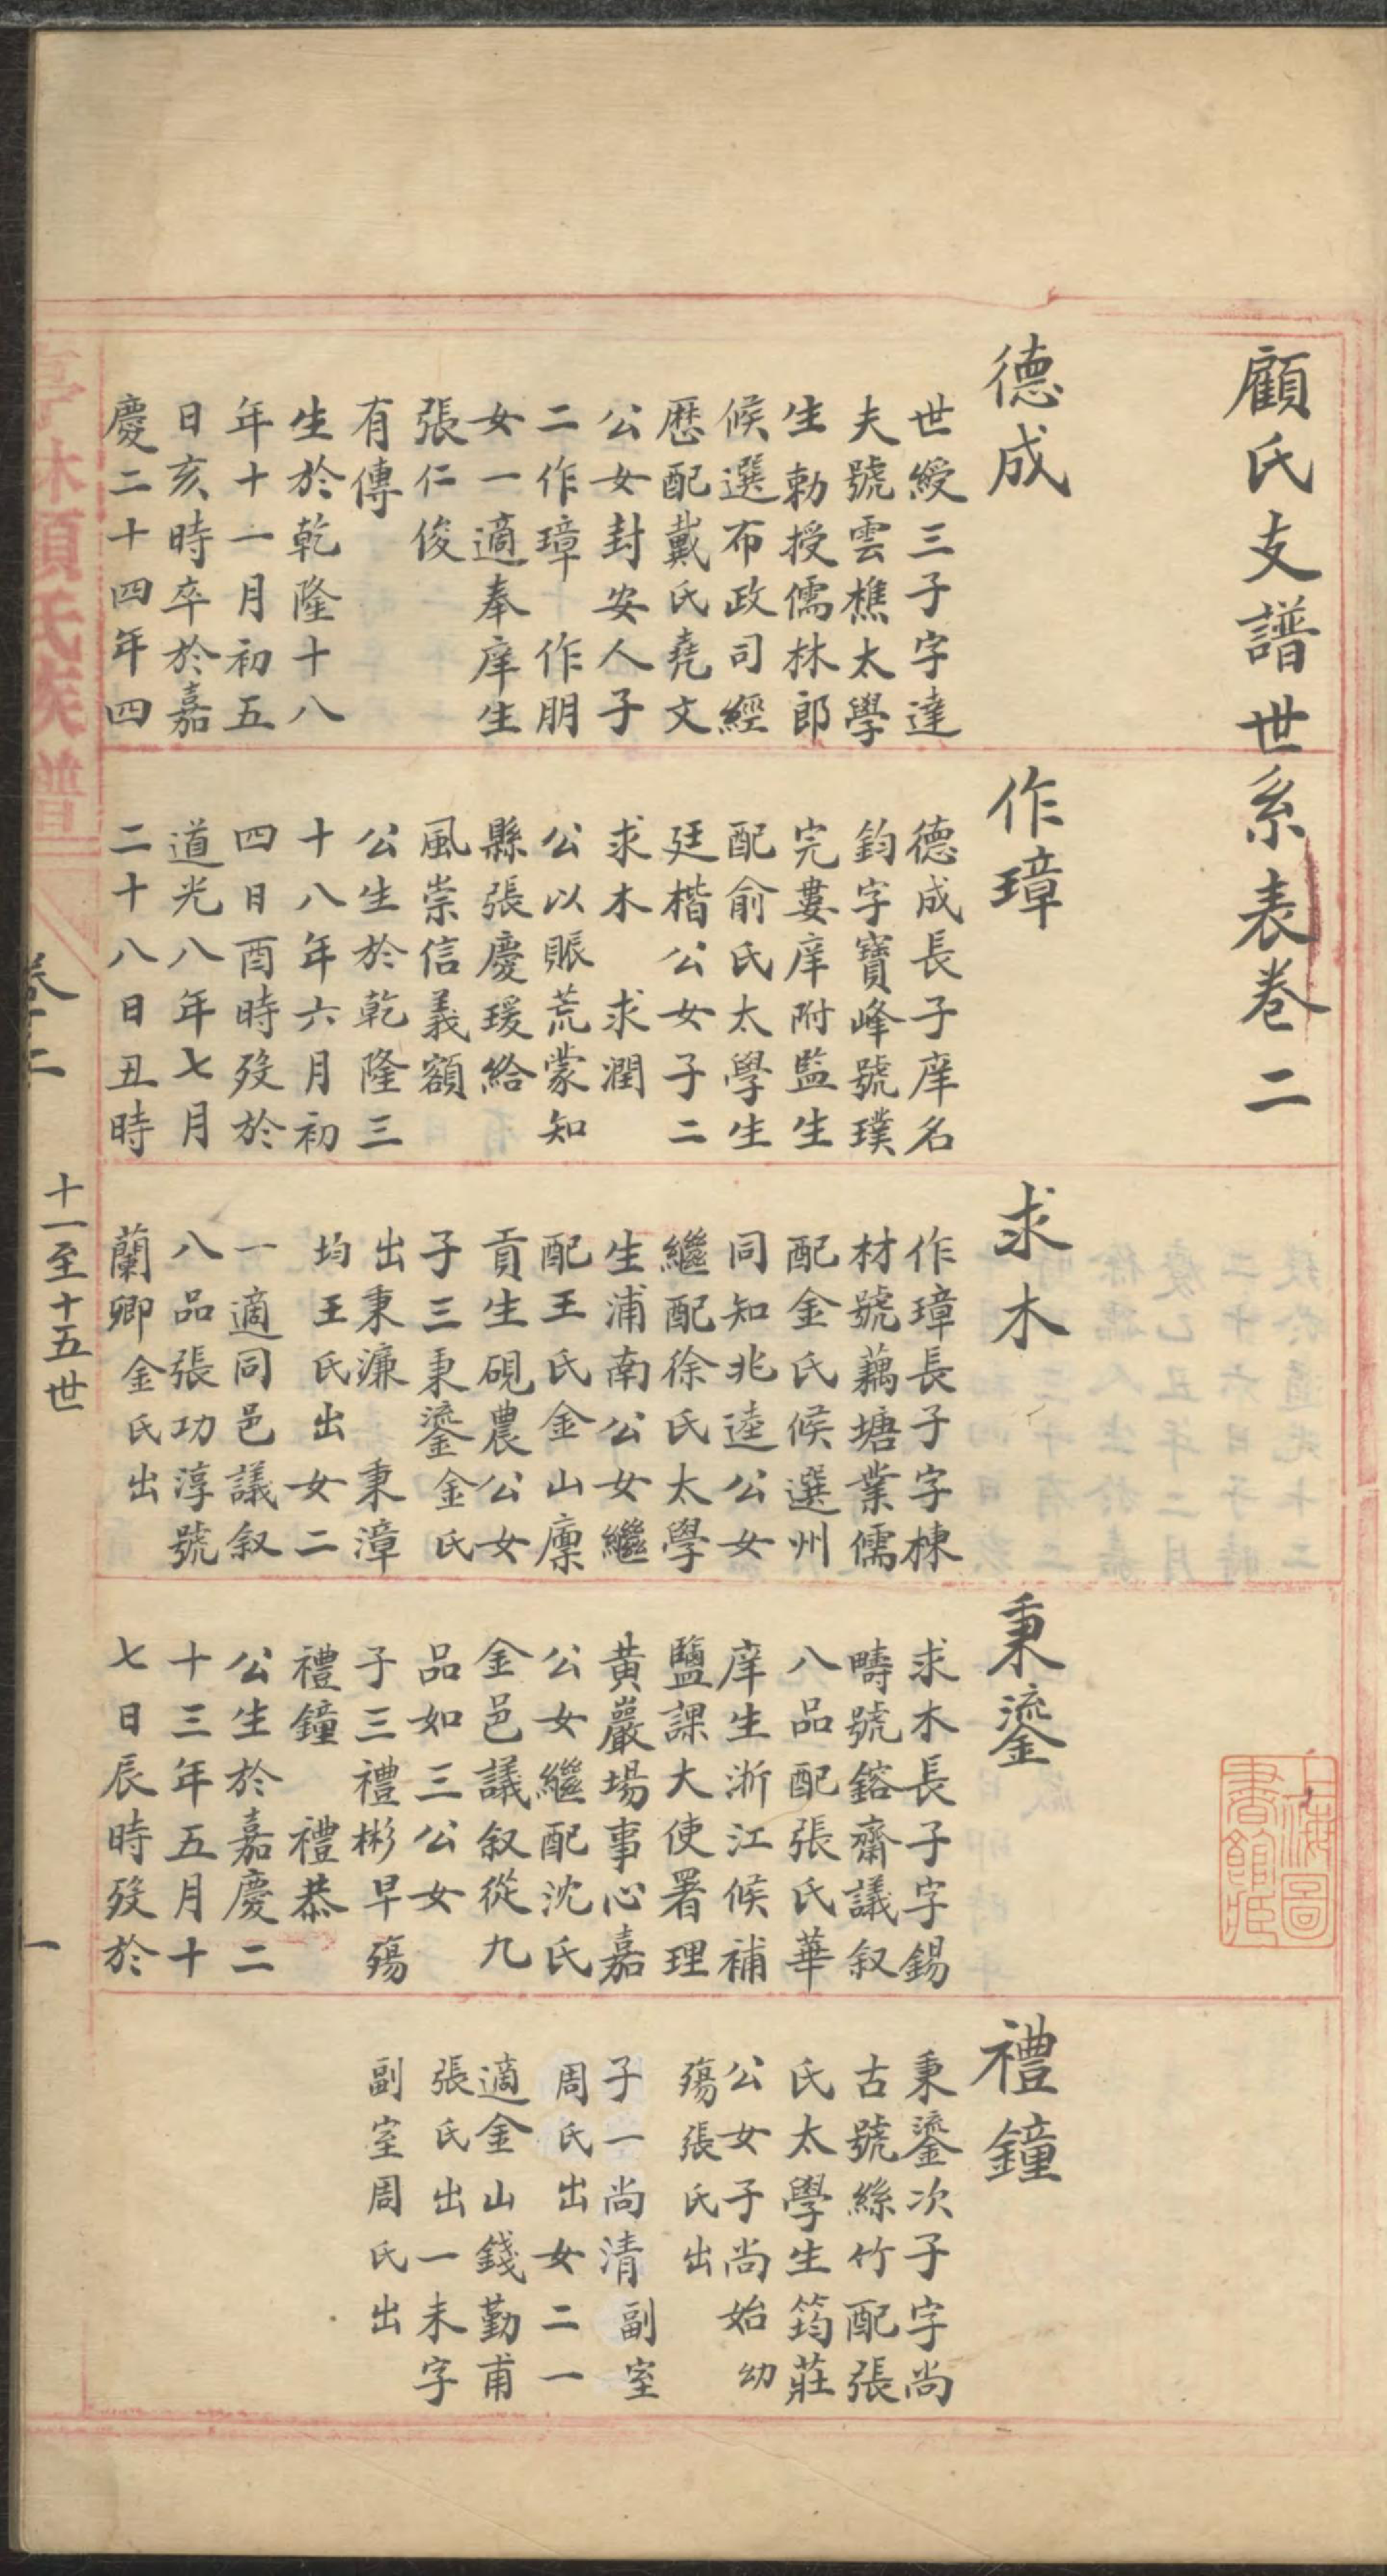 顧氏支譜世系表卷二
德成
世綬三子字達
夫號雲樵太學
生勅授儒林郎
候選布政司經
歷配戴氏堯文
公女封安人子
二作璋 作朋
女一適奉庠生
張仁俊
有傳
生於乾隆十八
年十一月初五
日亥時卒於嘉
慶二十四年四
作璋
德成長子庠名
鈞字寶峰號璞
完婁庠附監生
配俞氏太學生
廷楷公女子二
求木 求潤
公以賑荒蒙知
縣張慶瑗給
風崇信義額
公生於乾隆三
十八年六月初
四日酉時歿於
道光八年七月
二十八日丑時
求木
作璋長子字棟
材號藕塘業儒
配金氏候選州
同知兆逵公女
繼配徐氏太學
生浦南公女繼
配王氏金山廩
貢生硯農公女
子三秉鎏金氏
出秉濂 秉漳
均王氏出 女二
一適同邑議叙
八品張功淳號
蘭卿金氏出
秉鎏
求木長子字錫
疇號鎔齋議叙
八品配張氏華
庠生浙江候補
鹽課大使署理
黃巖場事心嘉
公女繼配沈氏
金邑議叙從九
品如三公女
子三禮彬早殤
禮鐘 禮恭
公生於嘉慶二
十三年五月十
七日辰時歿於
禮鐘
秉鎏次子字尚
古號絲竹配張
氏太學生筠莊
公女子尚始幼
殤張氏出
子一尚清副室
周氏出女二一
適金山錢勤甫
張氏出一未字
副室周氏出
亭林顧氏族譜
卷二 十一至十五世 一
上海圖書館藏